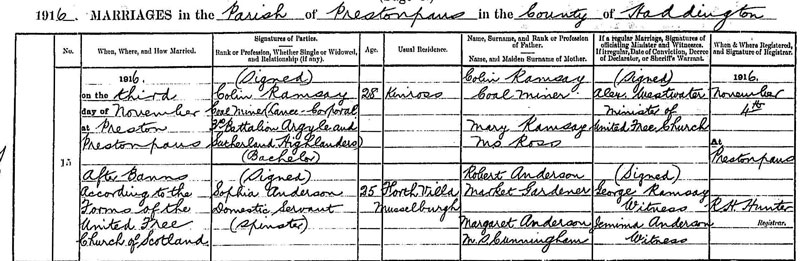 1916. MARRIAGES in the Parish of Prestonpans in the County of Haddington
No.
When, Where, and How Married.
Signatures of Parties.
Rank or Profession, Whether Single or Widowed, and Relationship (if any).
Age.
Usual Residence.
Name, Surname, and Rank or Profession of Father.
Name, and Maiden Surname of Mother.
If a regular Marriage, Signatures of officiating Minister and Witnesses.
If irregular, Date of Conviction, Decree of Declarator, or Sheriff's Warrant.
When & Where Registered, and Signature of Registrar.
15
1916.
on the third
day of November
at Preston
Prestonpans
After Banns
According to the
Forms of the
United Free
Church of Scotland
(Signed)
Colin Ramsay
Coal Miner (Lance-Corporal
3rd Battalion Argyle and
Sutherland Highlanders)
(Bachelor)
(Signed)
Sophia Anderson
Domestic Servant
(Spinster)
28
25
Kinross
Forth Villa
Musselburgh
Colin Ramsay
Coal Miner
Mary Ramsay
M.S. Ross
Robert Anderson
Market Gardener
Margaret Anderson
M.S. Cunningham
(Signed)
Alex. Westwater
Minister of
United Free Church
(Signed)
George Ramsay
Witness
Jemima Anderson
Witness
1916.
November
4th
At
Prestonpans
R. H. Hunter
Registrar.